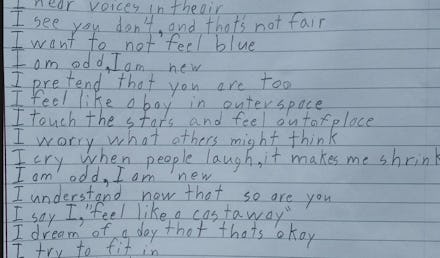 I hear voices in the air
I see you don't, and that's not fair
I want to not feel blue
I am odd, I am new
I pretend that you are too
I feel like a boy in outerspace
I touch the stars and feel out of place
I worry what others might think
I cry when people laugh, it makes me shrink
I am odd, I am new
I understand now that so are you
I say I, "feel like a castaway"
I dream of a day that thats okay
I try to fit in